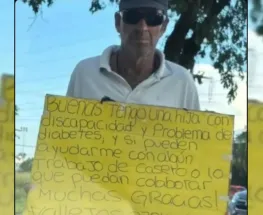 BUENAS TENGO UNA HIJA CON
DISCAPACIDAD Y PROBLEMA DE
DIABETES, Y SI PUEDEN
AYUDARME CON ALGÚN
TRABAJO DE CASERO O LO
QUE PUEDAN COLOBORAR
MUCHAS GRACIAS!